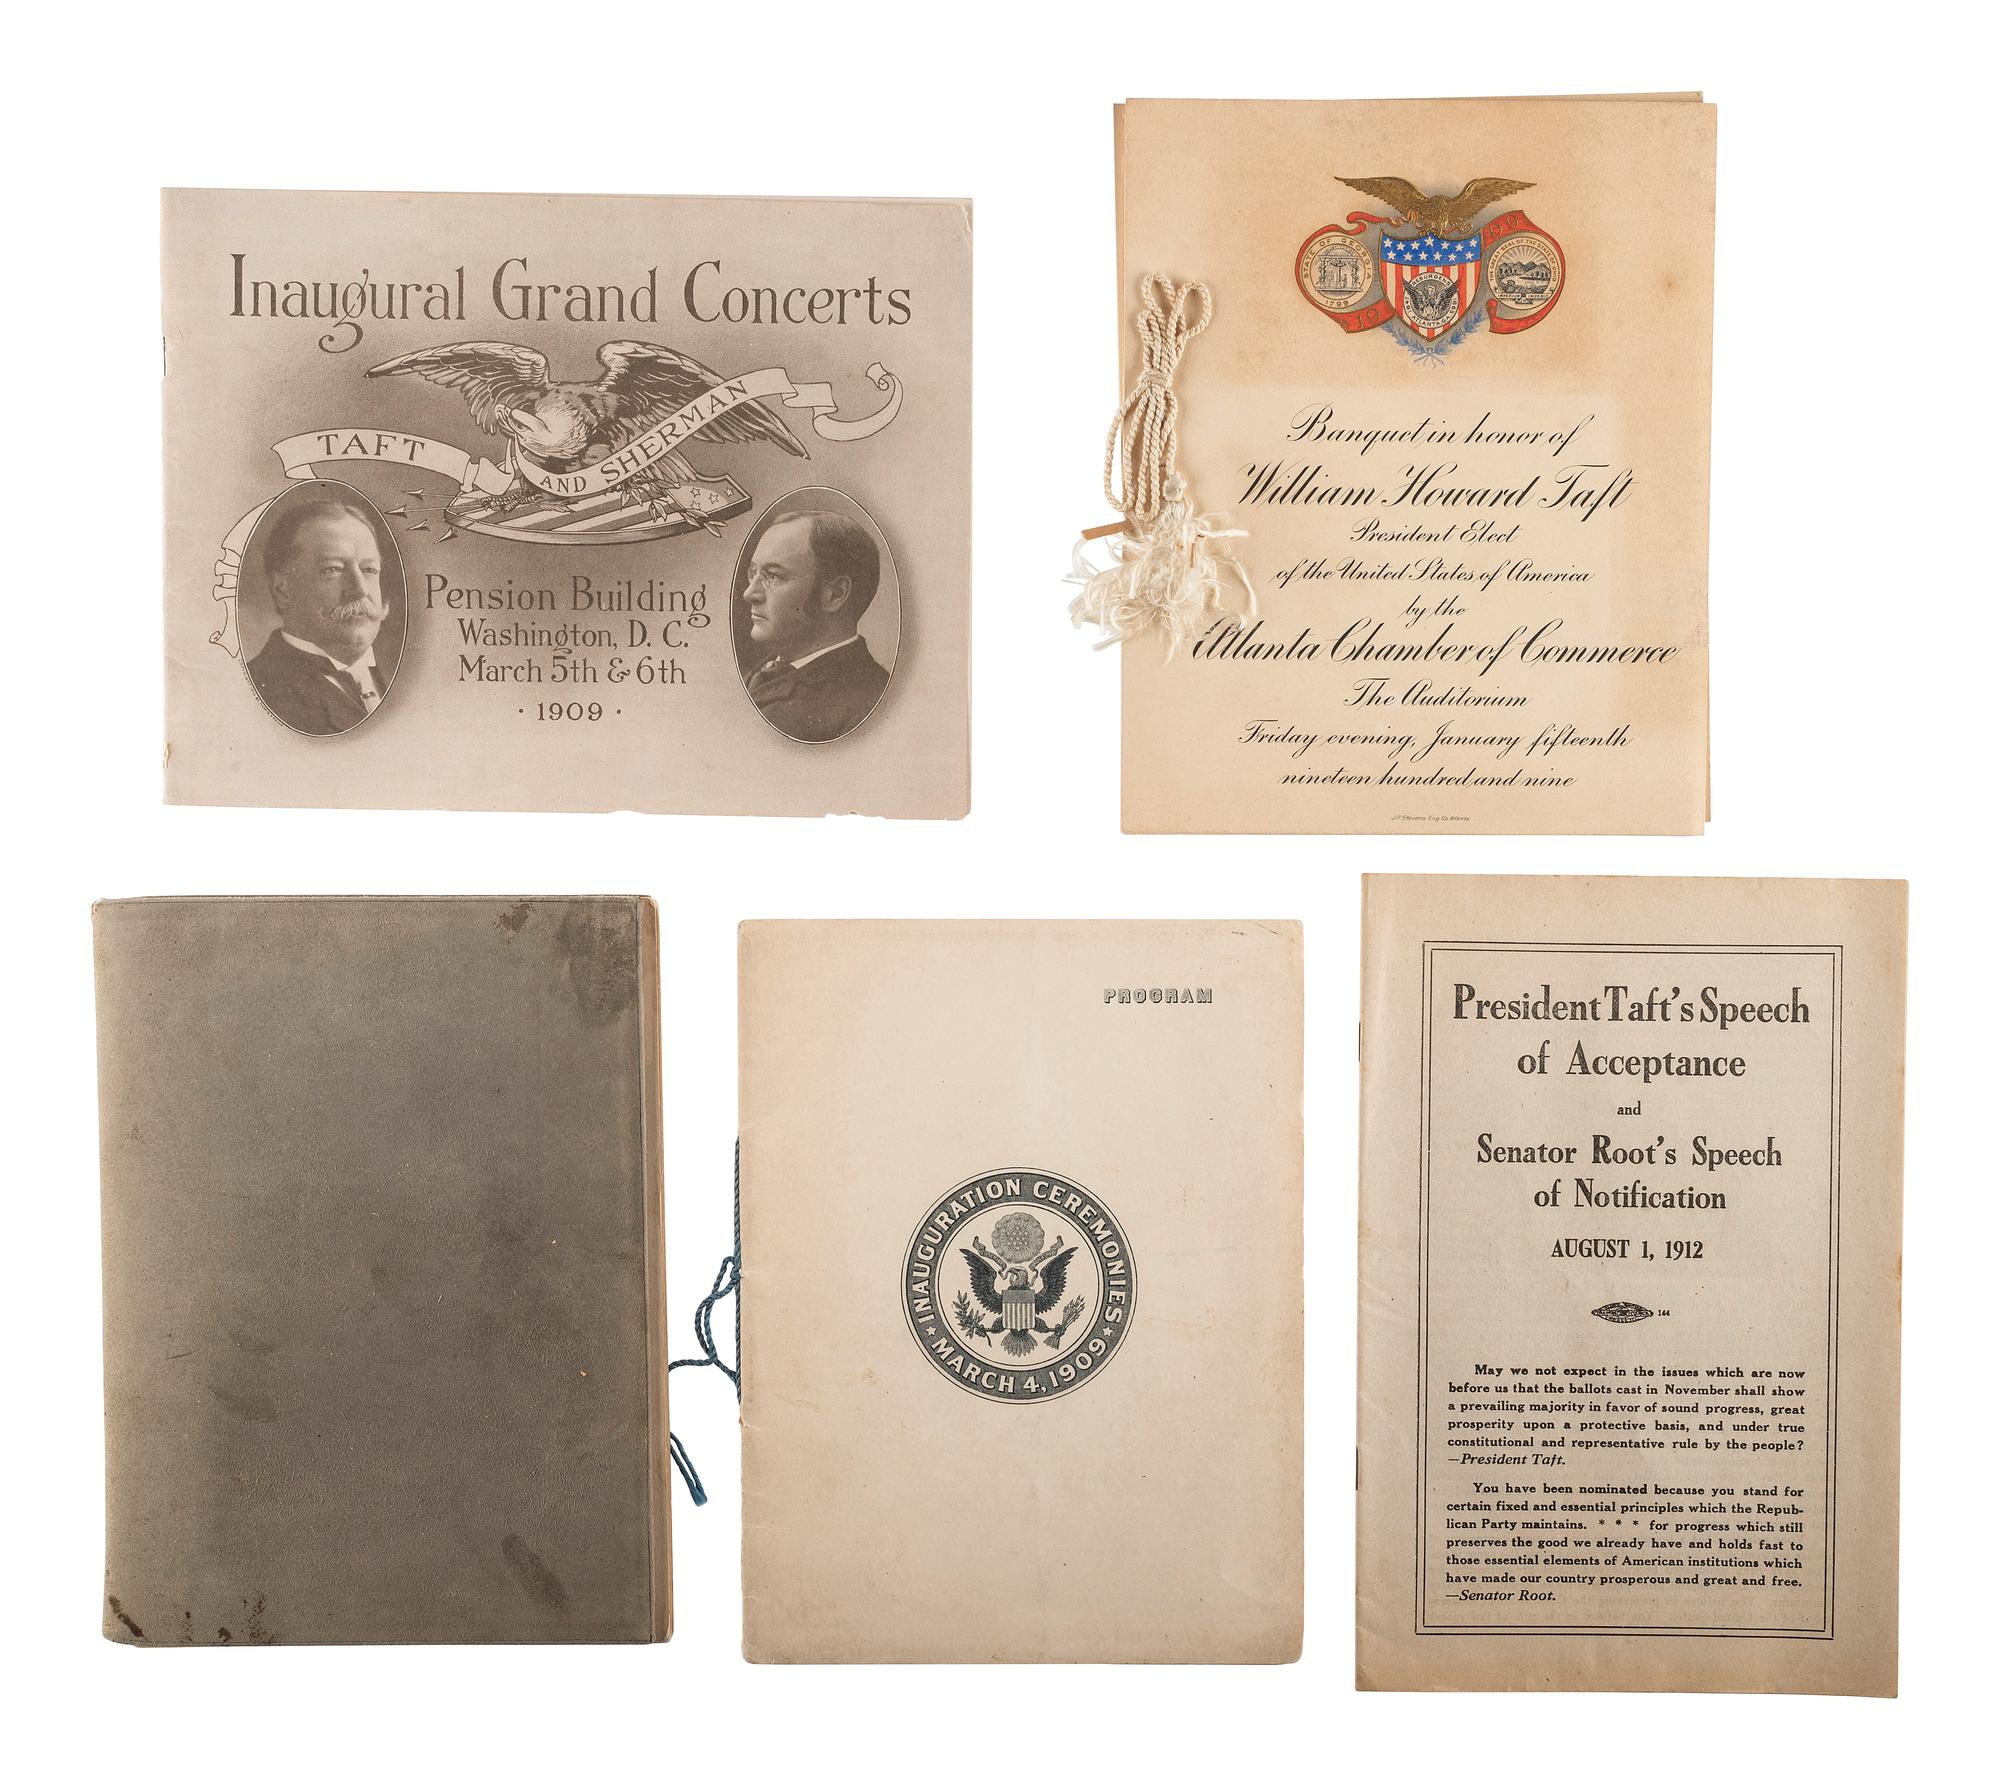 Inaugural Grand Concerts
TAFT AND SHERMAN
Pension Building
Washington, D. C.
March 5th & 6th
· 1909 ·
STATE OF GEORGIA
1799
1909
RESURGENS
ATLANTA, GA.
THE GREAT SEAL OF THE STATE OF OHIO
Banquet in honor of
William Howard Taft
President Elect
of the United States of America
by the
Atlanta Chamber of Commerce
The Auditorium
Friday evening, January fifteenth
nineteen hundred and nine
J.P. Stevens Eng. Co. Atlanta
PROGRAM
INAUGURATION CEREMONIES
MARCH 4, 1909
President Taft's Speech
of Acceptance
and
Senator Root's Speech
of Notification
AUGUST 1, 1912
144
May we not expect in the issues which are now
before us that the ballots cast in November shall show
a prevailing majority in favor of sound progress, great
prosperity upon a protective basis, and under true
constitutional and representative rule by the people?
—President Taft.
You have been nominated because you stand for
certain fixed and essential principles which the Repub-
lican Party maintains. * * * for progress which still
preserves the good we already have and holds fast to
those essential elements of American institutions which
have made our country prosperous and great and free.
—Senator Root.